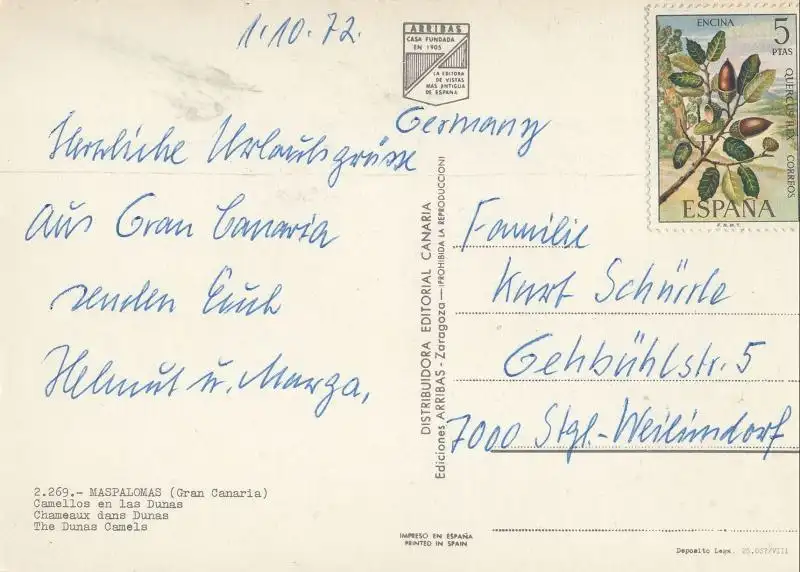 1.10.72.
ARRIBAS
CASA FUNDADA
EN 1905
LA EDITORA
DE VISTAS
MAS ANTIGUA
DE ESPAÑA
ENCINA
5
PTAS
QUERCUS ILEX
CORREOS
ESPAÑA
F.N.M.T.
Herzliche Urlaubsgrüsse
aus Gran Canaria
senden Euch
Helmut u. Marga.
Germany
Familie
Kurt Schürle
Gehbühlstr. 5
7000 Stgt.-Weilimdorf
DISTRIBUIDORA EDITORIAL CANARIA
Ediciones ARRIBAS - Zaragoza—(PROHIBIDA LA REPRODUCCION)
2.269.- MASPALOMAS (Gran Canaria)
Camellos en las Dunas
Chameaux dans Dunas
The Dunas Camels
IMPRESO EN ESPAÑA
PRINTED IN SPAIN
Deposito Legal